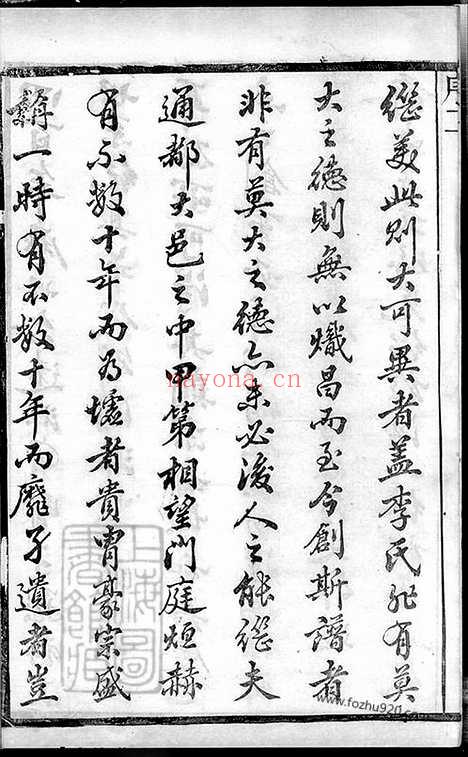 序二
繼美此則大可異者蓋李氏非有莫
大之德則無以熾昌而至今創斯譜者
非有莫大之德亦未必後人之能繼夫
通都大邑之中甲第相望門庭烜赫
有不數十年而為墟者貴冑豪宗盛
一時有不數十年而靡孑遺者豈
上海圖書館藏
nayona.cn
www.fozhu920.com